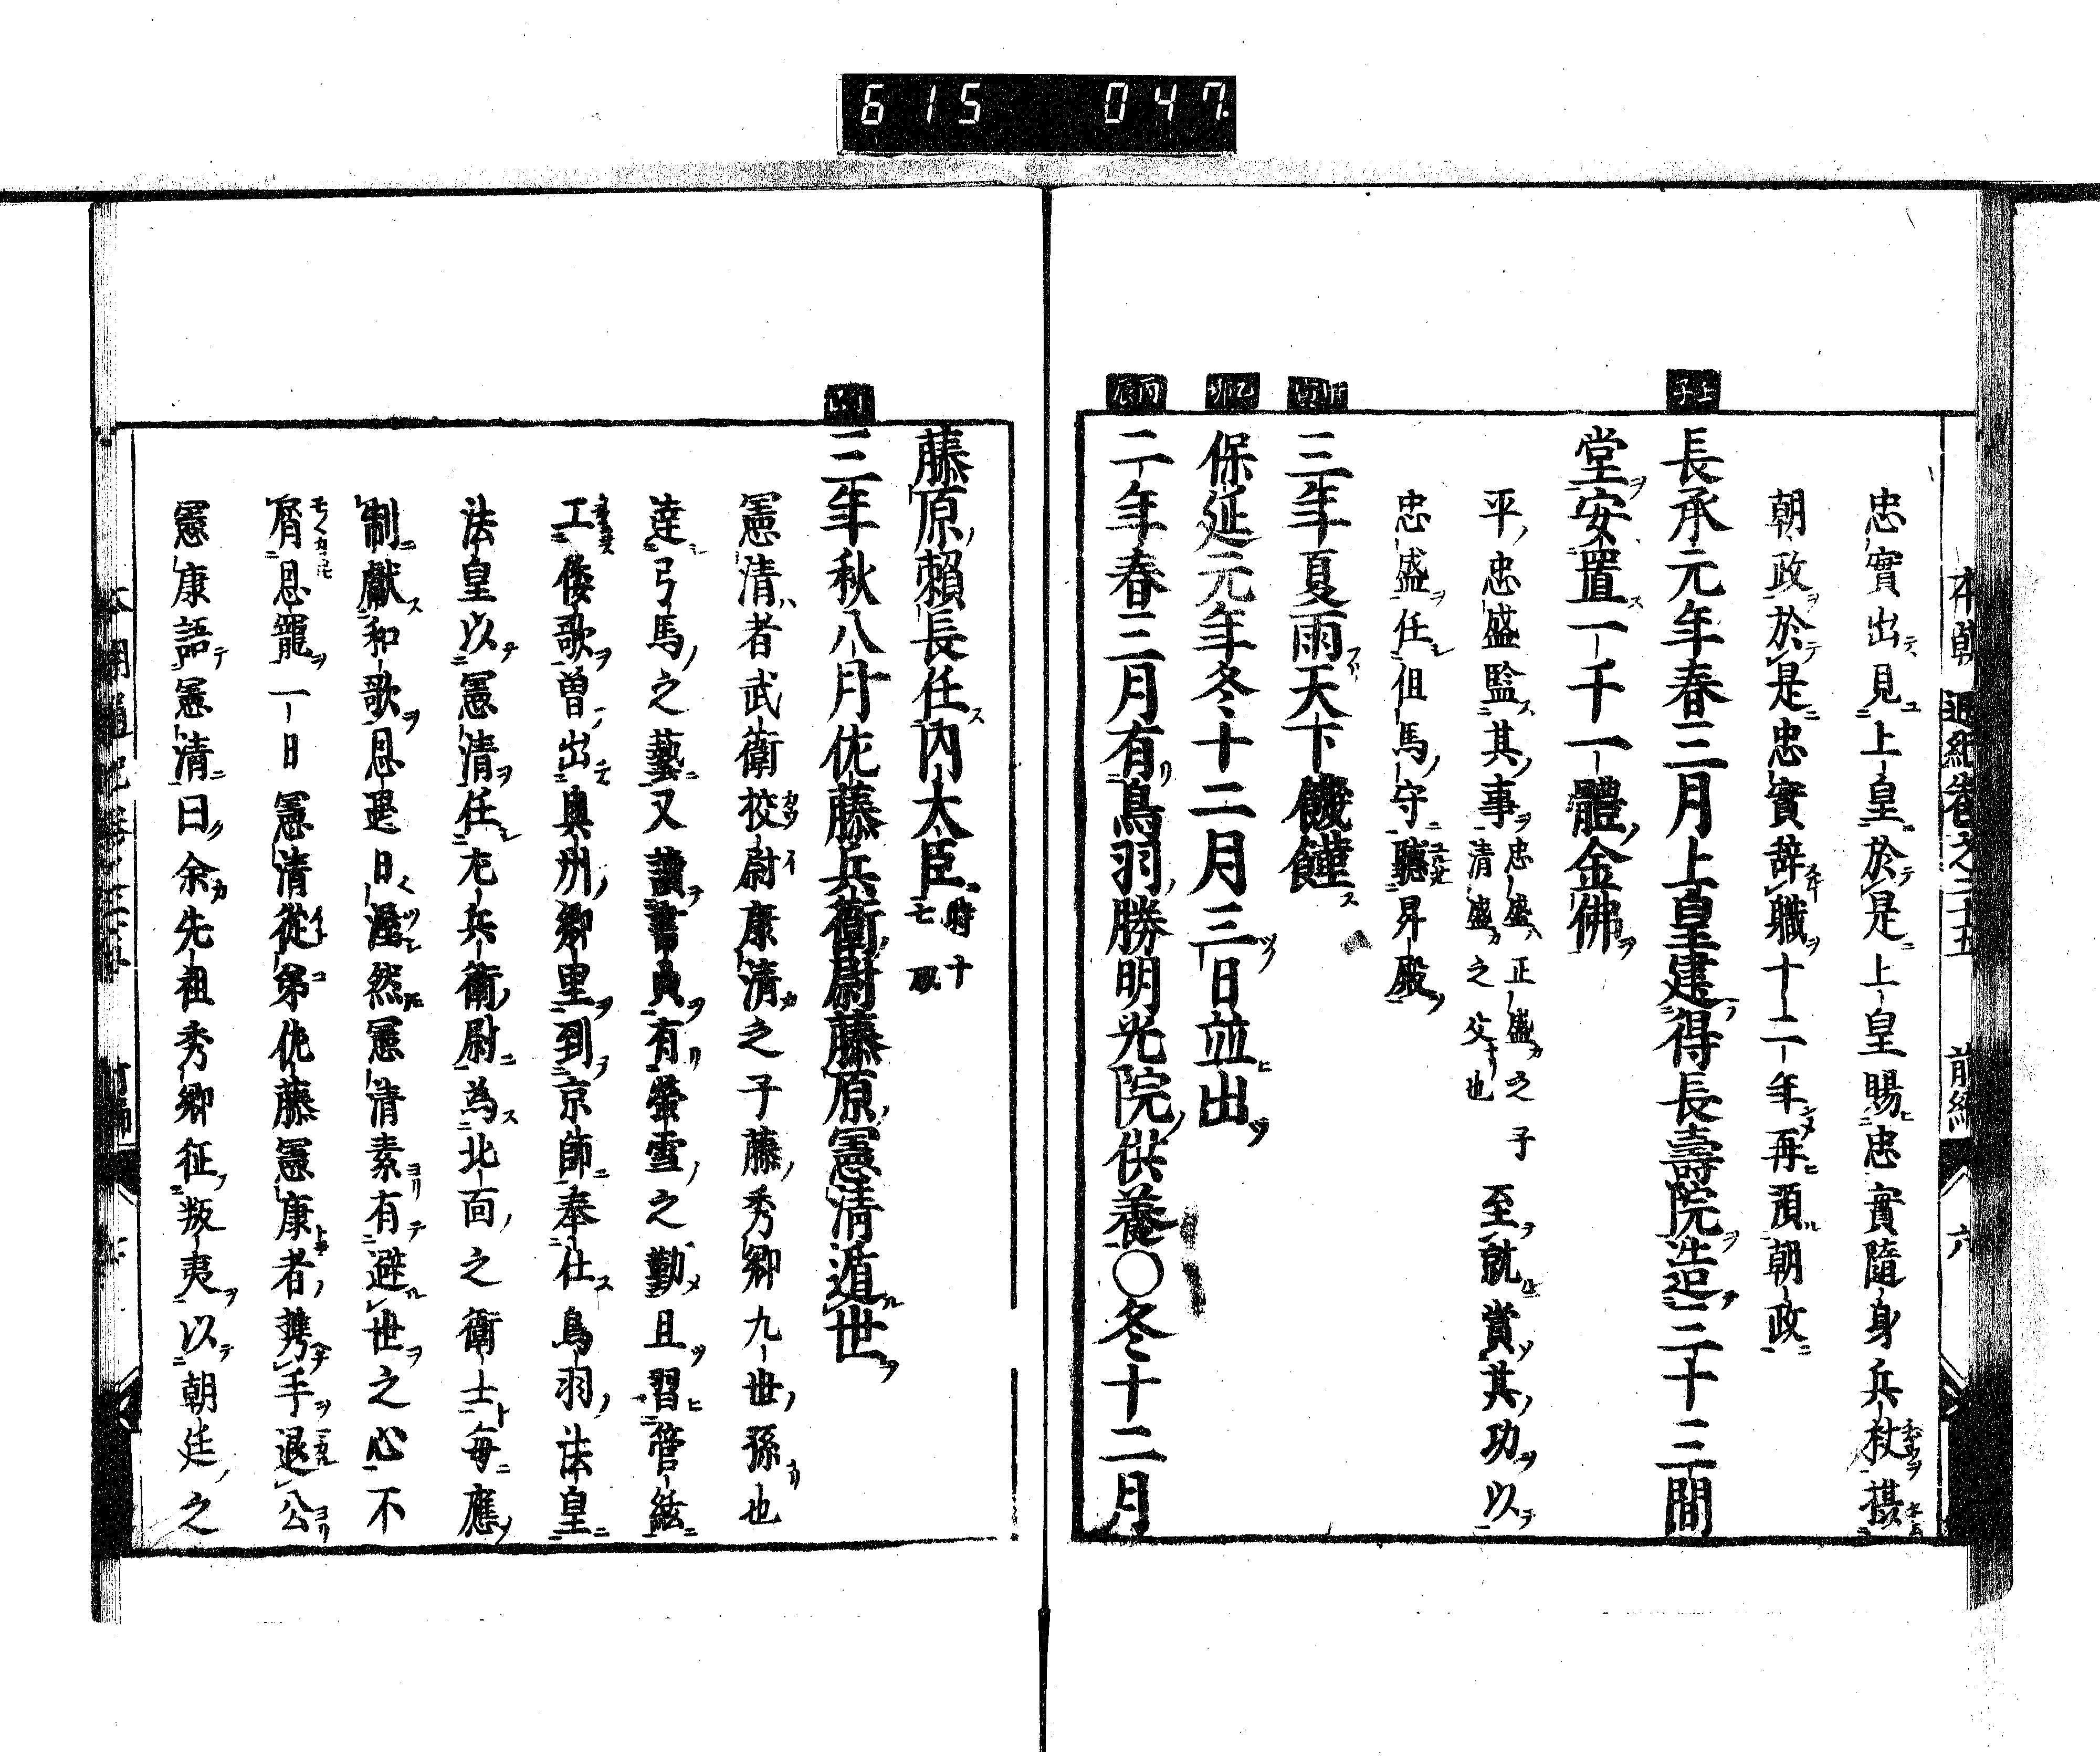 615 047
本朝通紀卷之二十五 前編 六
忠實出見上皇於是上皇賜忠實隨身兵杖攝
朝政於是忠實辞職十二年再預朝政
壬子
長承元年春三月上皇建得長壽院造三十三間
堂安置一千一體金佛
平忠盛監其事忠盛正盛之子清盛之父也至就賞其功以
忠盛任但馬守聽昇殿
甲寅
三年夏雨天下饑饉
乙卯
保延元年冬十二月三日並出
丙辰
二年春三月有鳥羽勝明光院供養〇冬十二月
藤原賴長任内大臣時十七歳
丁巳
三年秋八月佐藤兵衛尉藤原憲清遁世
憲清者武衛校尉康清之子藤秀卿九世孫也
達弓馬之藝又讀書典有螢雪之勤且習管絃
工倭歌曽出奥州卿里到京師奉仕鳥羽法皇
法皇以憲清任充兵衛尉為北面之衛士毎應
制獻和歌恩遇日渥然憲清素有避世之心不
屑恩寵一日憲清從弟佐藤憲康者携手退公
憲康語憲清曰余先祖秀卿征叛夷以朝廷之